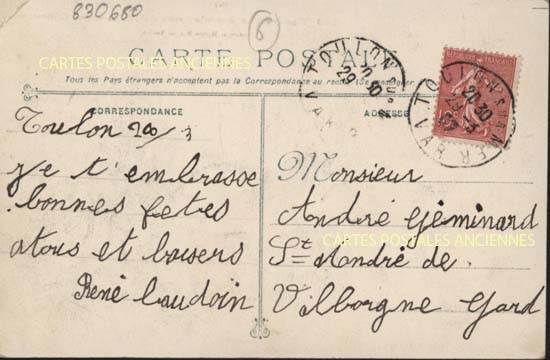 830680
6
CARTE POSTALE
CARTES POSTALES ANCIENNES
Tous les Pays étrangers n'acceptent pas la Correspondance au recto
CORRESPONDANCE
ADRESSE
TOULON-S-MER
20.30
29-3
VAR
TOULON VAR
20.30
29
Toulon 29/3
je t'embrasse
bonnes fetes
atous et baisers
René Laudoin
Monsieur
André Géminard
CARTES POSTALES ANCIENNES
St André de
Vilborgne Gard